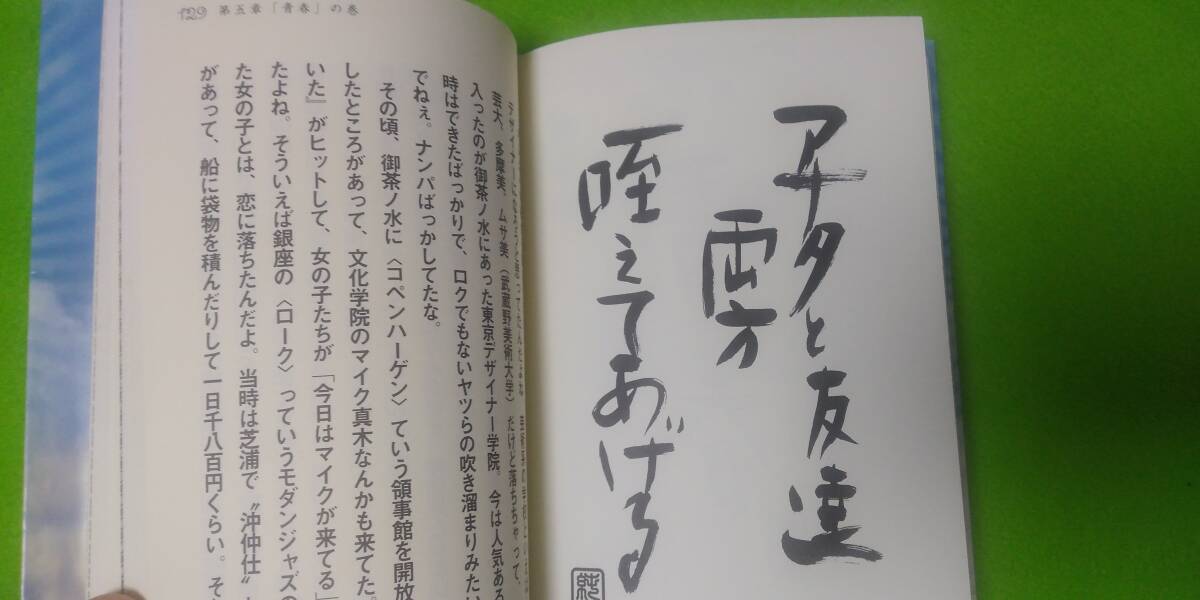 アナタと友達
両方
咥えてあげる
純
129 第五章「青春」の巻
デザイナーになろうと思ってたんだよな
芸大、多摩美、ムサ美（武蔵野美術大学）だけど落ちちゃって、
入ったのが御茶ノ水にあった東京デザイナー学院。今は人気ある
時はできたばっかりで、ロクでもないヤツらの吹き溜まりみたい
でねぇ。ナンパばっかしてたな。
その頃、御茶ノ水に〈コペンハーゲン〉ていう領事館を開放
したところがあって、文化学院のマイク真木なんかも来てた。
いた』がヒットして、女の子たちが「今日はマイクが来てる」
たよね。そういえば銀座の〈ローク〉っていうモダンジャズの
た女の子とは、恋に落ちたんだよ。当時は芝浦で〝沖仲仕〟
があって、船に袋物を積んだりして一日千八百円くらい。そ